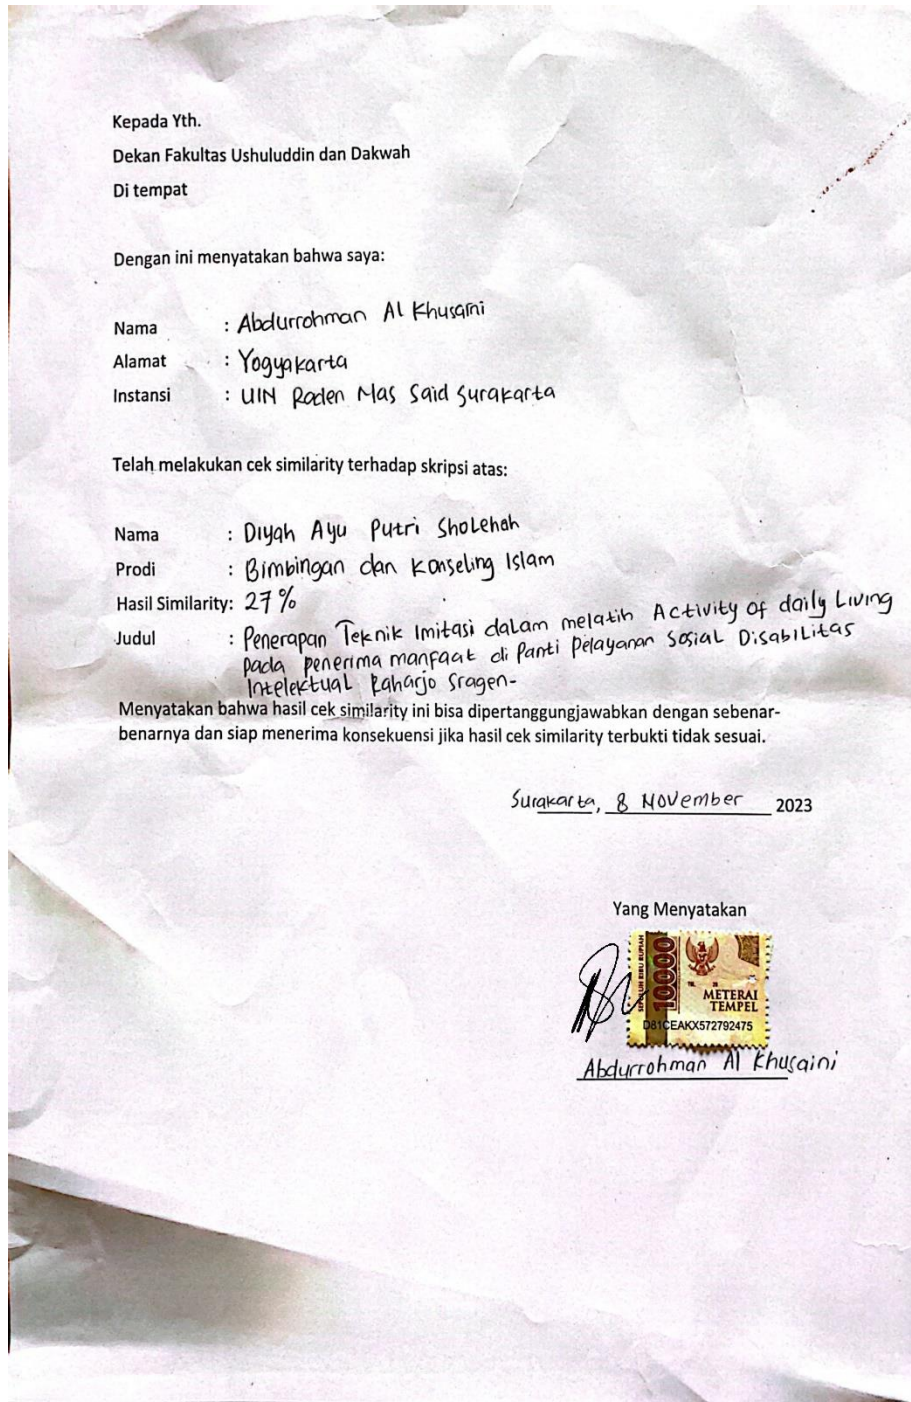 Kepada Yth.
Dekan Fakultas Ushuluddin dan Dakwah
Di tempat
Dengan ini menyatakan bahwa saya:
Nama : Abdurrohman Al Khusaini
Alamat : Yogyakarta
Instansi : UIN Raden Mas Said Surakarta
Telah melakukan cek similarity terhadap skripsi atas:
Nama : Diyah Ayu Putri Sholehah
Prodi : Bimbingan dan Konseling Islam
Hasil Similarity: 27%
Judul : Penerapan Teknik Imitasi dalam melatih Activity of daily Living
pada penerima manfaat di Panti Pelayanan Sosial Disabilitas
Intelektual Raharjo Sragen-
Menyatakan bahwa hasil cek similarity ini bisa dipertanggungjawabkan dengan sebenar-
benarnya dan siap menerima konsekuensi jika hasil cek similarity terbukti tidak sesuai.
Surakarta, 8 November 2023
Yang Menyatakan
SEPULUH RIBU RUPIAH
10000
METERAI
TEMPEL
D81CEAKX572792475
Abdurrohman Al Khusaini